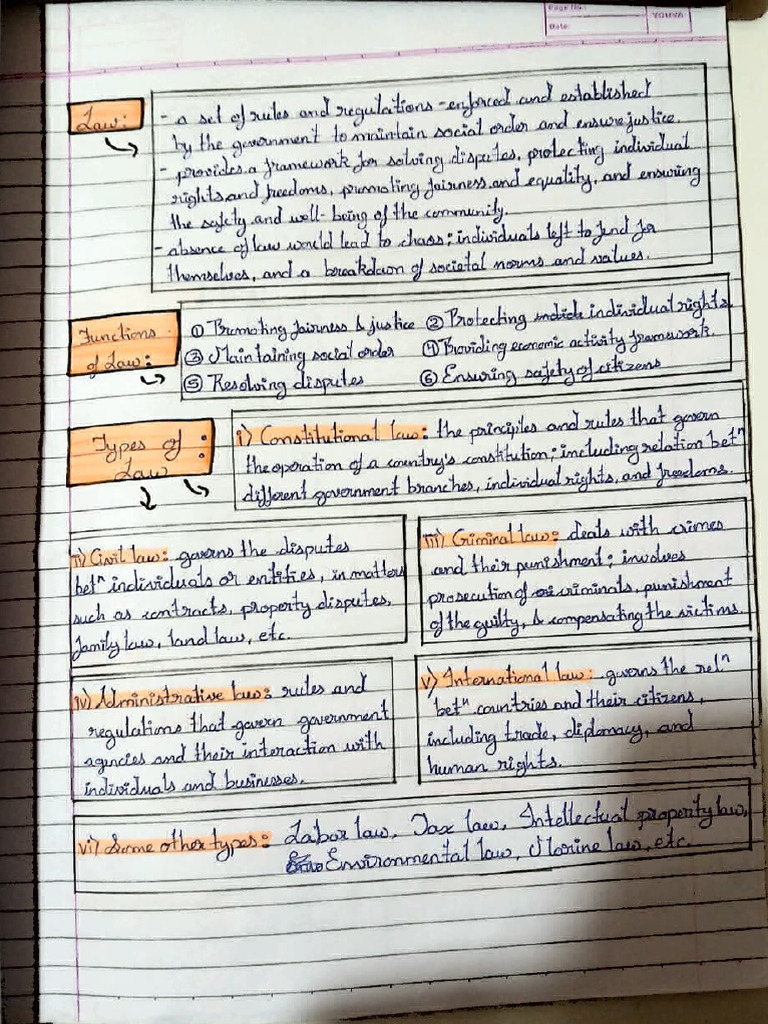 Page No.
Date:
YOUVA
Law:
- a set of rules and regulations - enforced and established
by the government to maintain social order and ensure justice.
- provides a framework for solving disputes, protecting individual
rights and freedoms, promoting fairness and equality, and ensuring
the safety and well-being of the community.
- absence of law would lead to chaos; individuals left to fend for
themselves, and a breakdown of societal norms and values.
Functions of Law:
① Promoting fairness & justice ② Protecting individual rights
③ Maintaining social order ④ Providing economic activity framework.
⑤ Resolving disputes ⑥ Ensuring safety of citizens
Types of Law:
i) Constitutional law: the principles and rules that govern
the operation of a country's constitution; including relation betⁿ
different government branches, individual rights, and freedoms.
ii) Civil law: governs the disputes
betⁿ individuals or entities, in matters
such as contracts, property disputes,
family law, land law, etc.
iii) Criminal law: deals with crimes
and their punishment; involves
prosecution of criminals, punishment
of the guilty, & compensating the victims.
iv) Administrative law: rules and
regulations that govern government
agencies and their interaction with
individuals and businesses.
v) International law: governs the relⁿ
betⁿ countries and their citizens,
including trade, diplomacy, and
human rights.
vi) Some other types: Labor law, Tax law, Intellectual property law,
Environmental law, Marine law, etc.